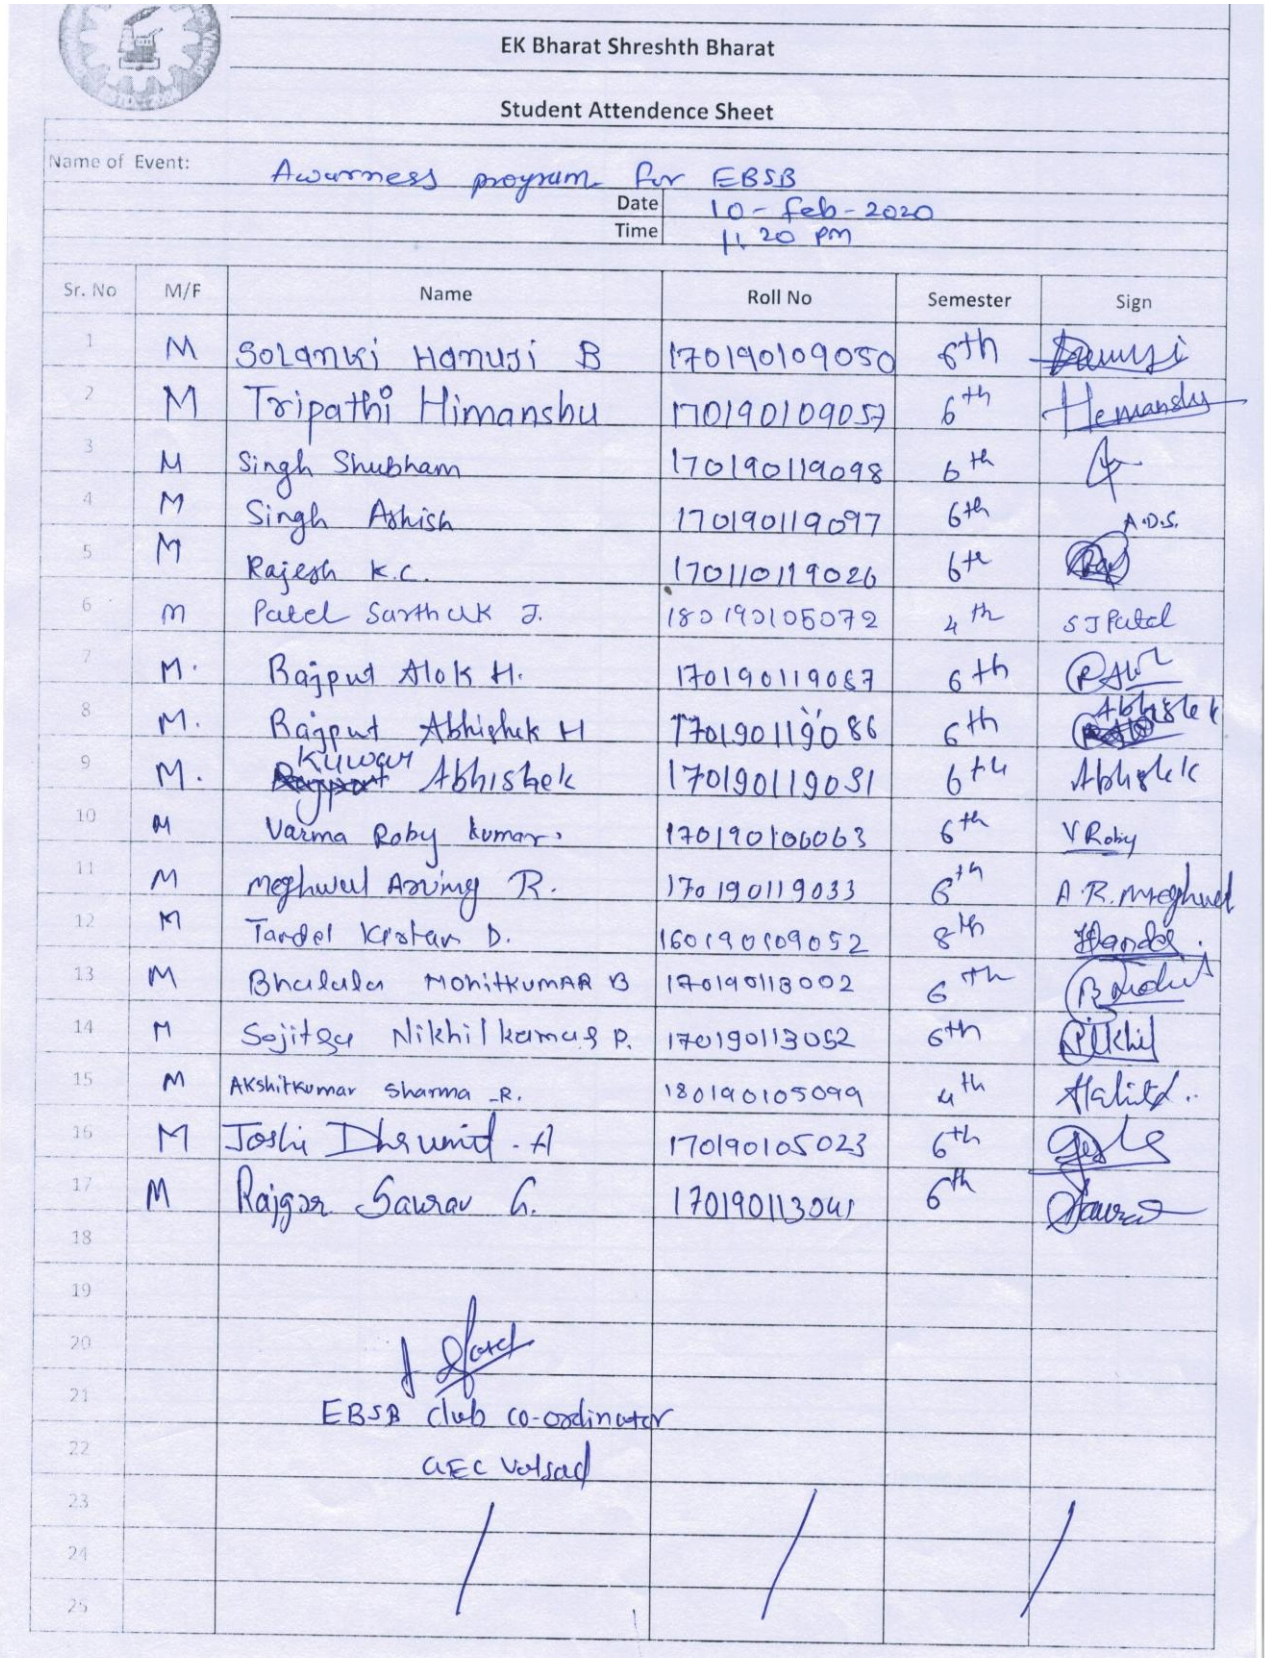 EK Bharat Shreshth Bharat
Student Attendence Sheet
Name of Event: Awarness program for EBSB
Date 10-feb-2020
Time 11.20 PM
Sr. No M/F Name Roll No Semester Sign
1 M Solanki Hanuji B 170190109050 6th
2 M Tripathi Himanshu 170190109057 6th Hemanshu
3 M Singh Shubham 170190119098 6th
4 M Singh Ashish 170190119097 6th A.D.S.
5 M Rajesh K.C. 170110119026 6th
6 M Patel Sarthak J. 180190105072 4th S J Patel
7 M. Rajput Alok H. 170190119087 6th
8 M. Rajput Abhishek H 170190119086 6th Abhishek
9 M. Kuwar Abhishek 170190119031 6th Abhishek
10 M Varma Roby kumar. 170190106063 6th V Roby
11 M Meghwal Arving R. 170190119033 6th A.R. Meghwal
12 M Tandel Kistan D. 160190109052 8th
13 M Bhalala MohitkumAR B 170190113002 6th
14 M Sojitra Nikhilkumar P. 170190113052 6th Nikhil
15 M AKshitkumar Sharma -R. 180190105099 4th
16 M Joshi Dhrumit . A 170190105023 6th
17 M Rajgor Saurav G. 170190113041 6th Saurav
18
19
20
21
EBSB club co-ordinator
22
GEC Valsad
23
24
25